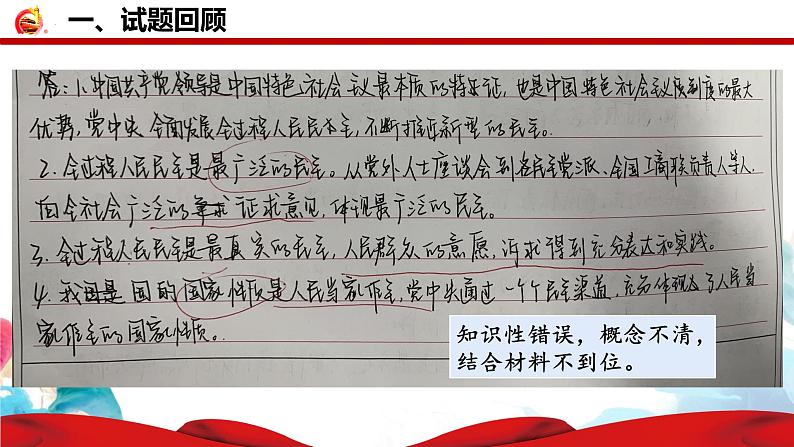 一、试题回顾
答：1.中国共产党领导是中国特色社会主义最本质的特征，也是中国特色社会主义制度的最大
优势，党中央全面发展全过程人民民主，不断推进新型的民主。
2.全过程人民民主是最广泛的民主。从党外人士座谈会到各民主党派、全国工商联负责人等人，
向全社会广泛的征求意见，体现最广泛的民主。
3.全过程人民民主是最真实的民主，人民群众的意愿，诉求得到充分表达和实践。
4.我国的国家性质是人民当家作主，党中央通过一个个民主渠道，充分体现了人民当
家作主的国家性质。
知识性错误，概念不清，
结合材料不到位。